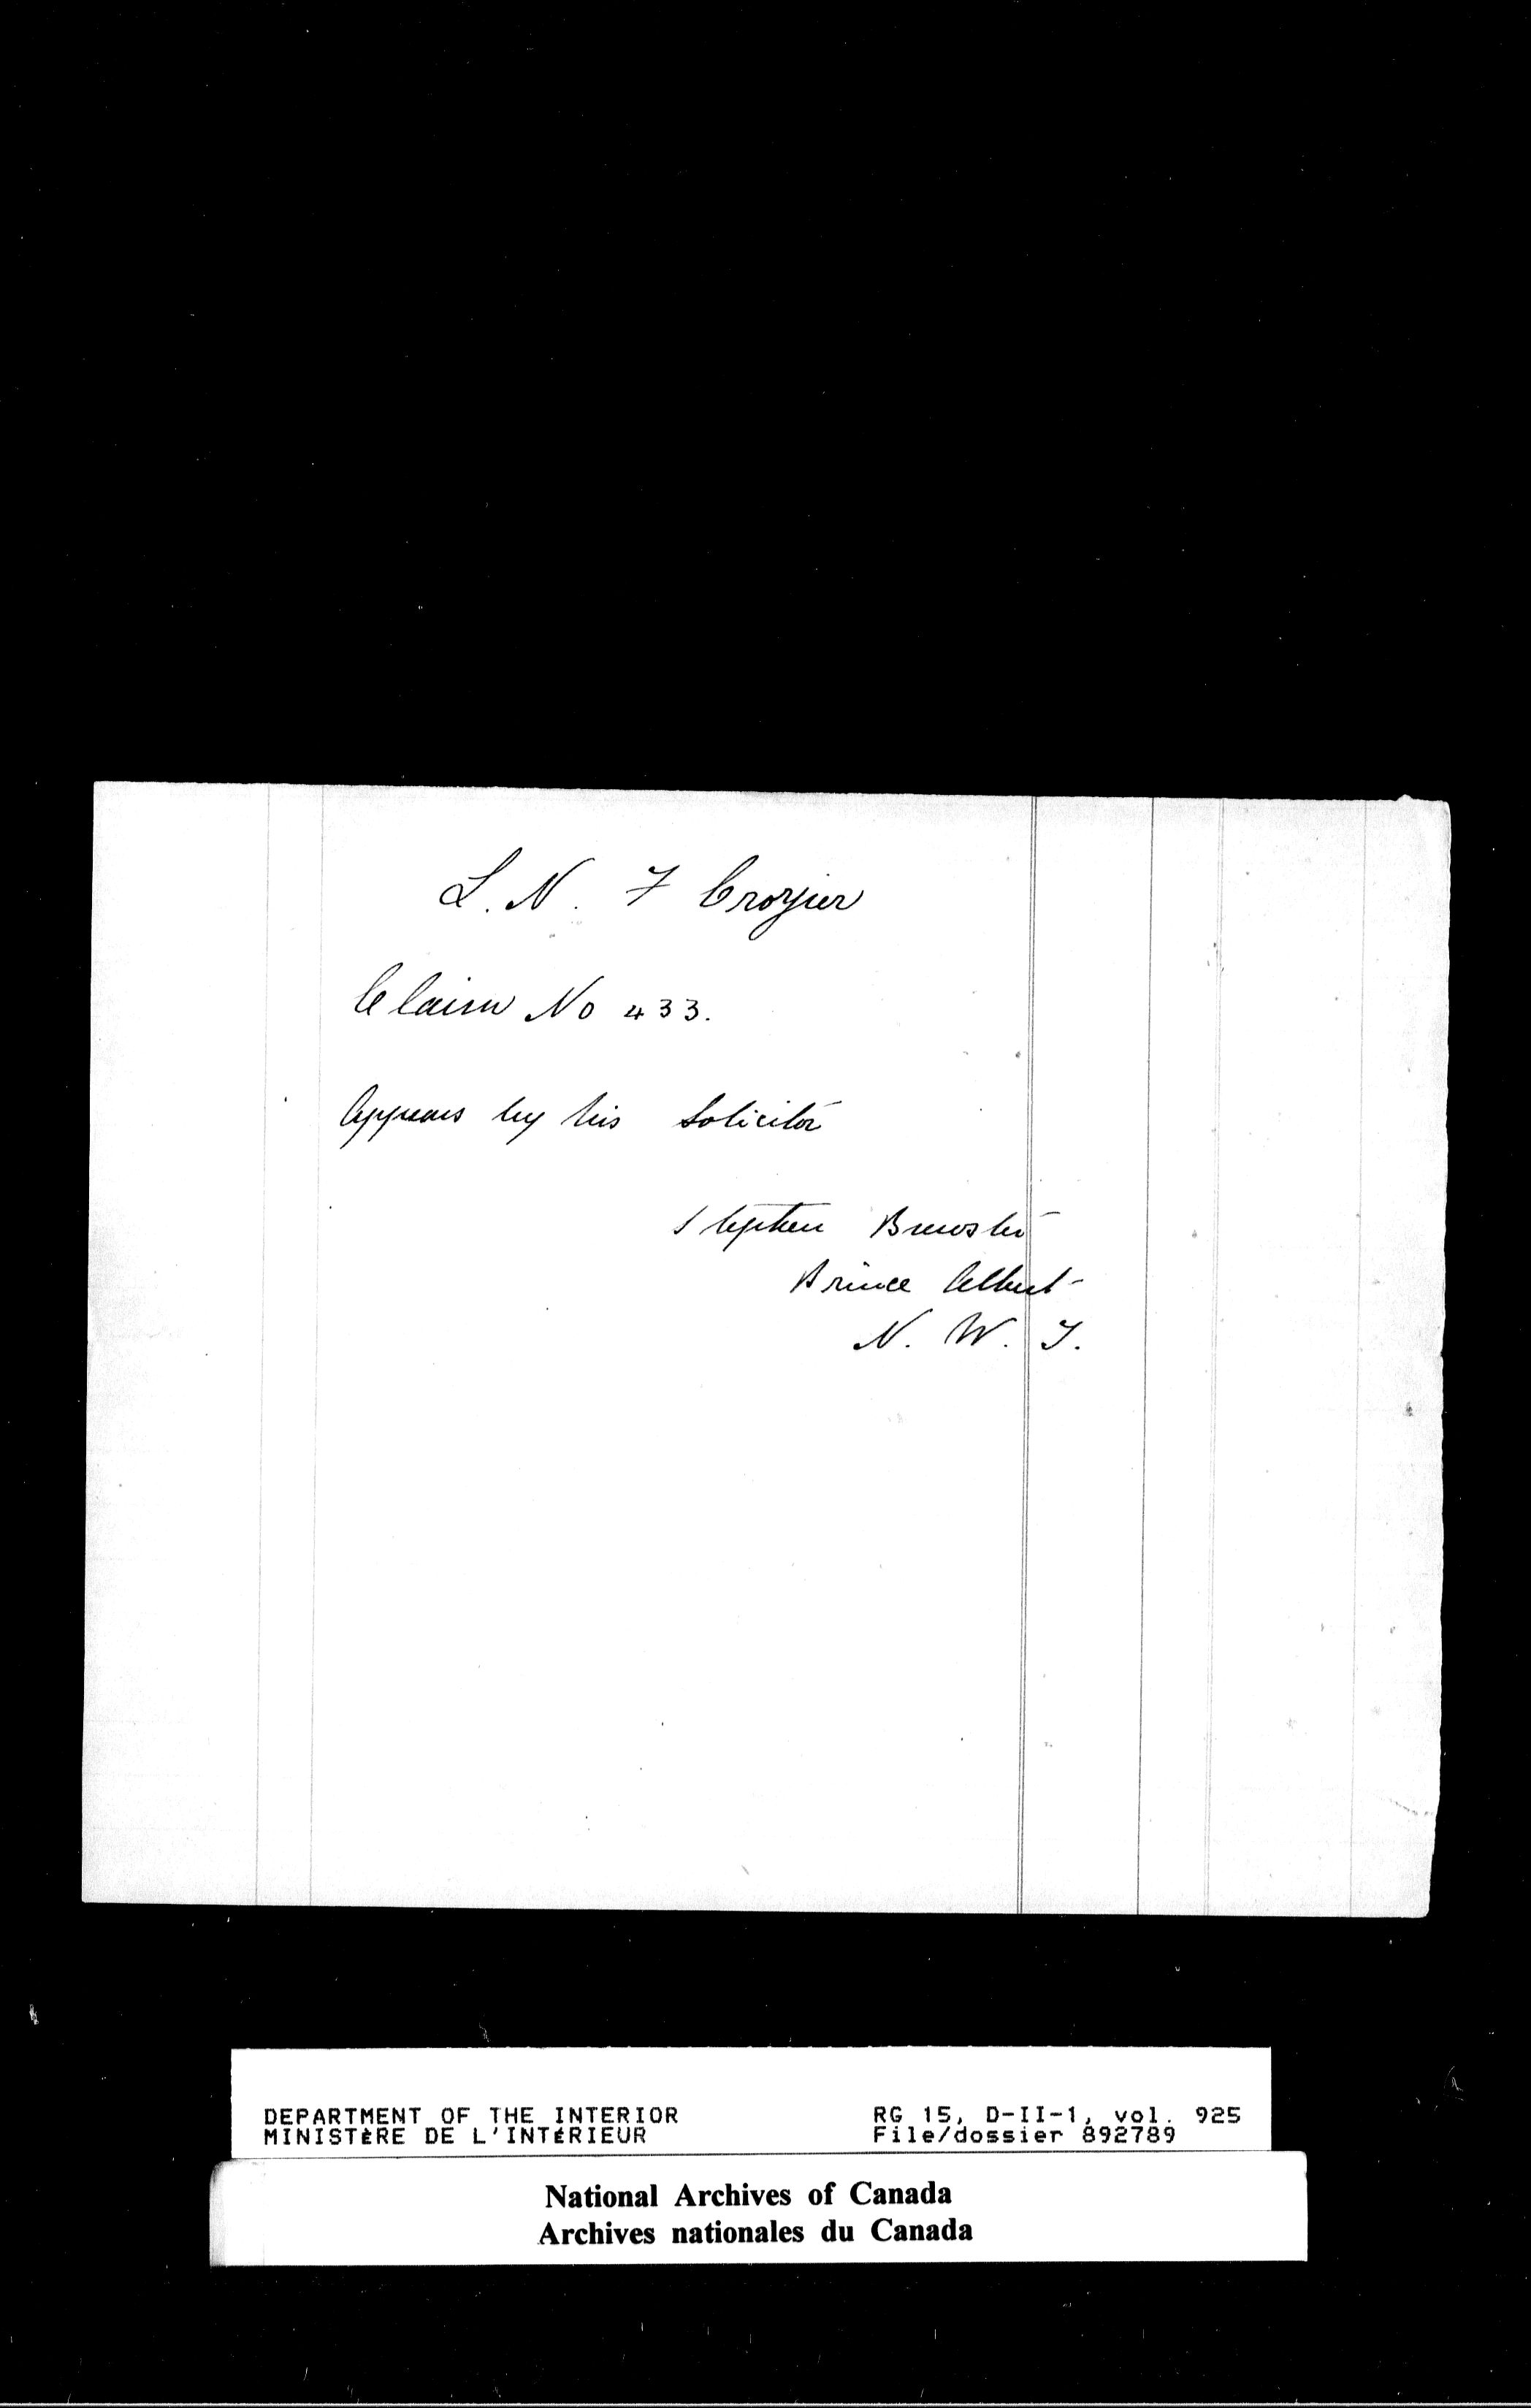 L. N. F Crozier
Claim No 433.
Appears by his Solicitor
Stephen Brewster
Prince Albert
N. W. T.
DEPARTMENT OF THE INTERIOR
MINISTÈRE DE L'INTÉRIEUR
RG 15, D-II-1, vol. 925
File/dossier 892789
National Archives of Canada
Archives nationales du Canada